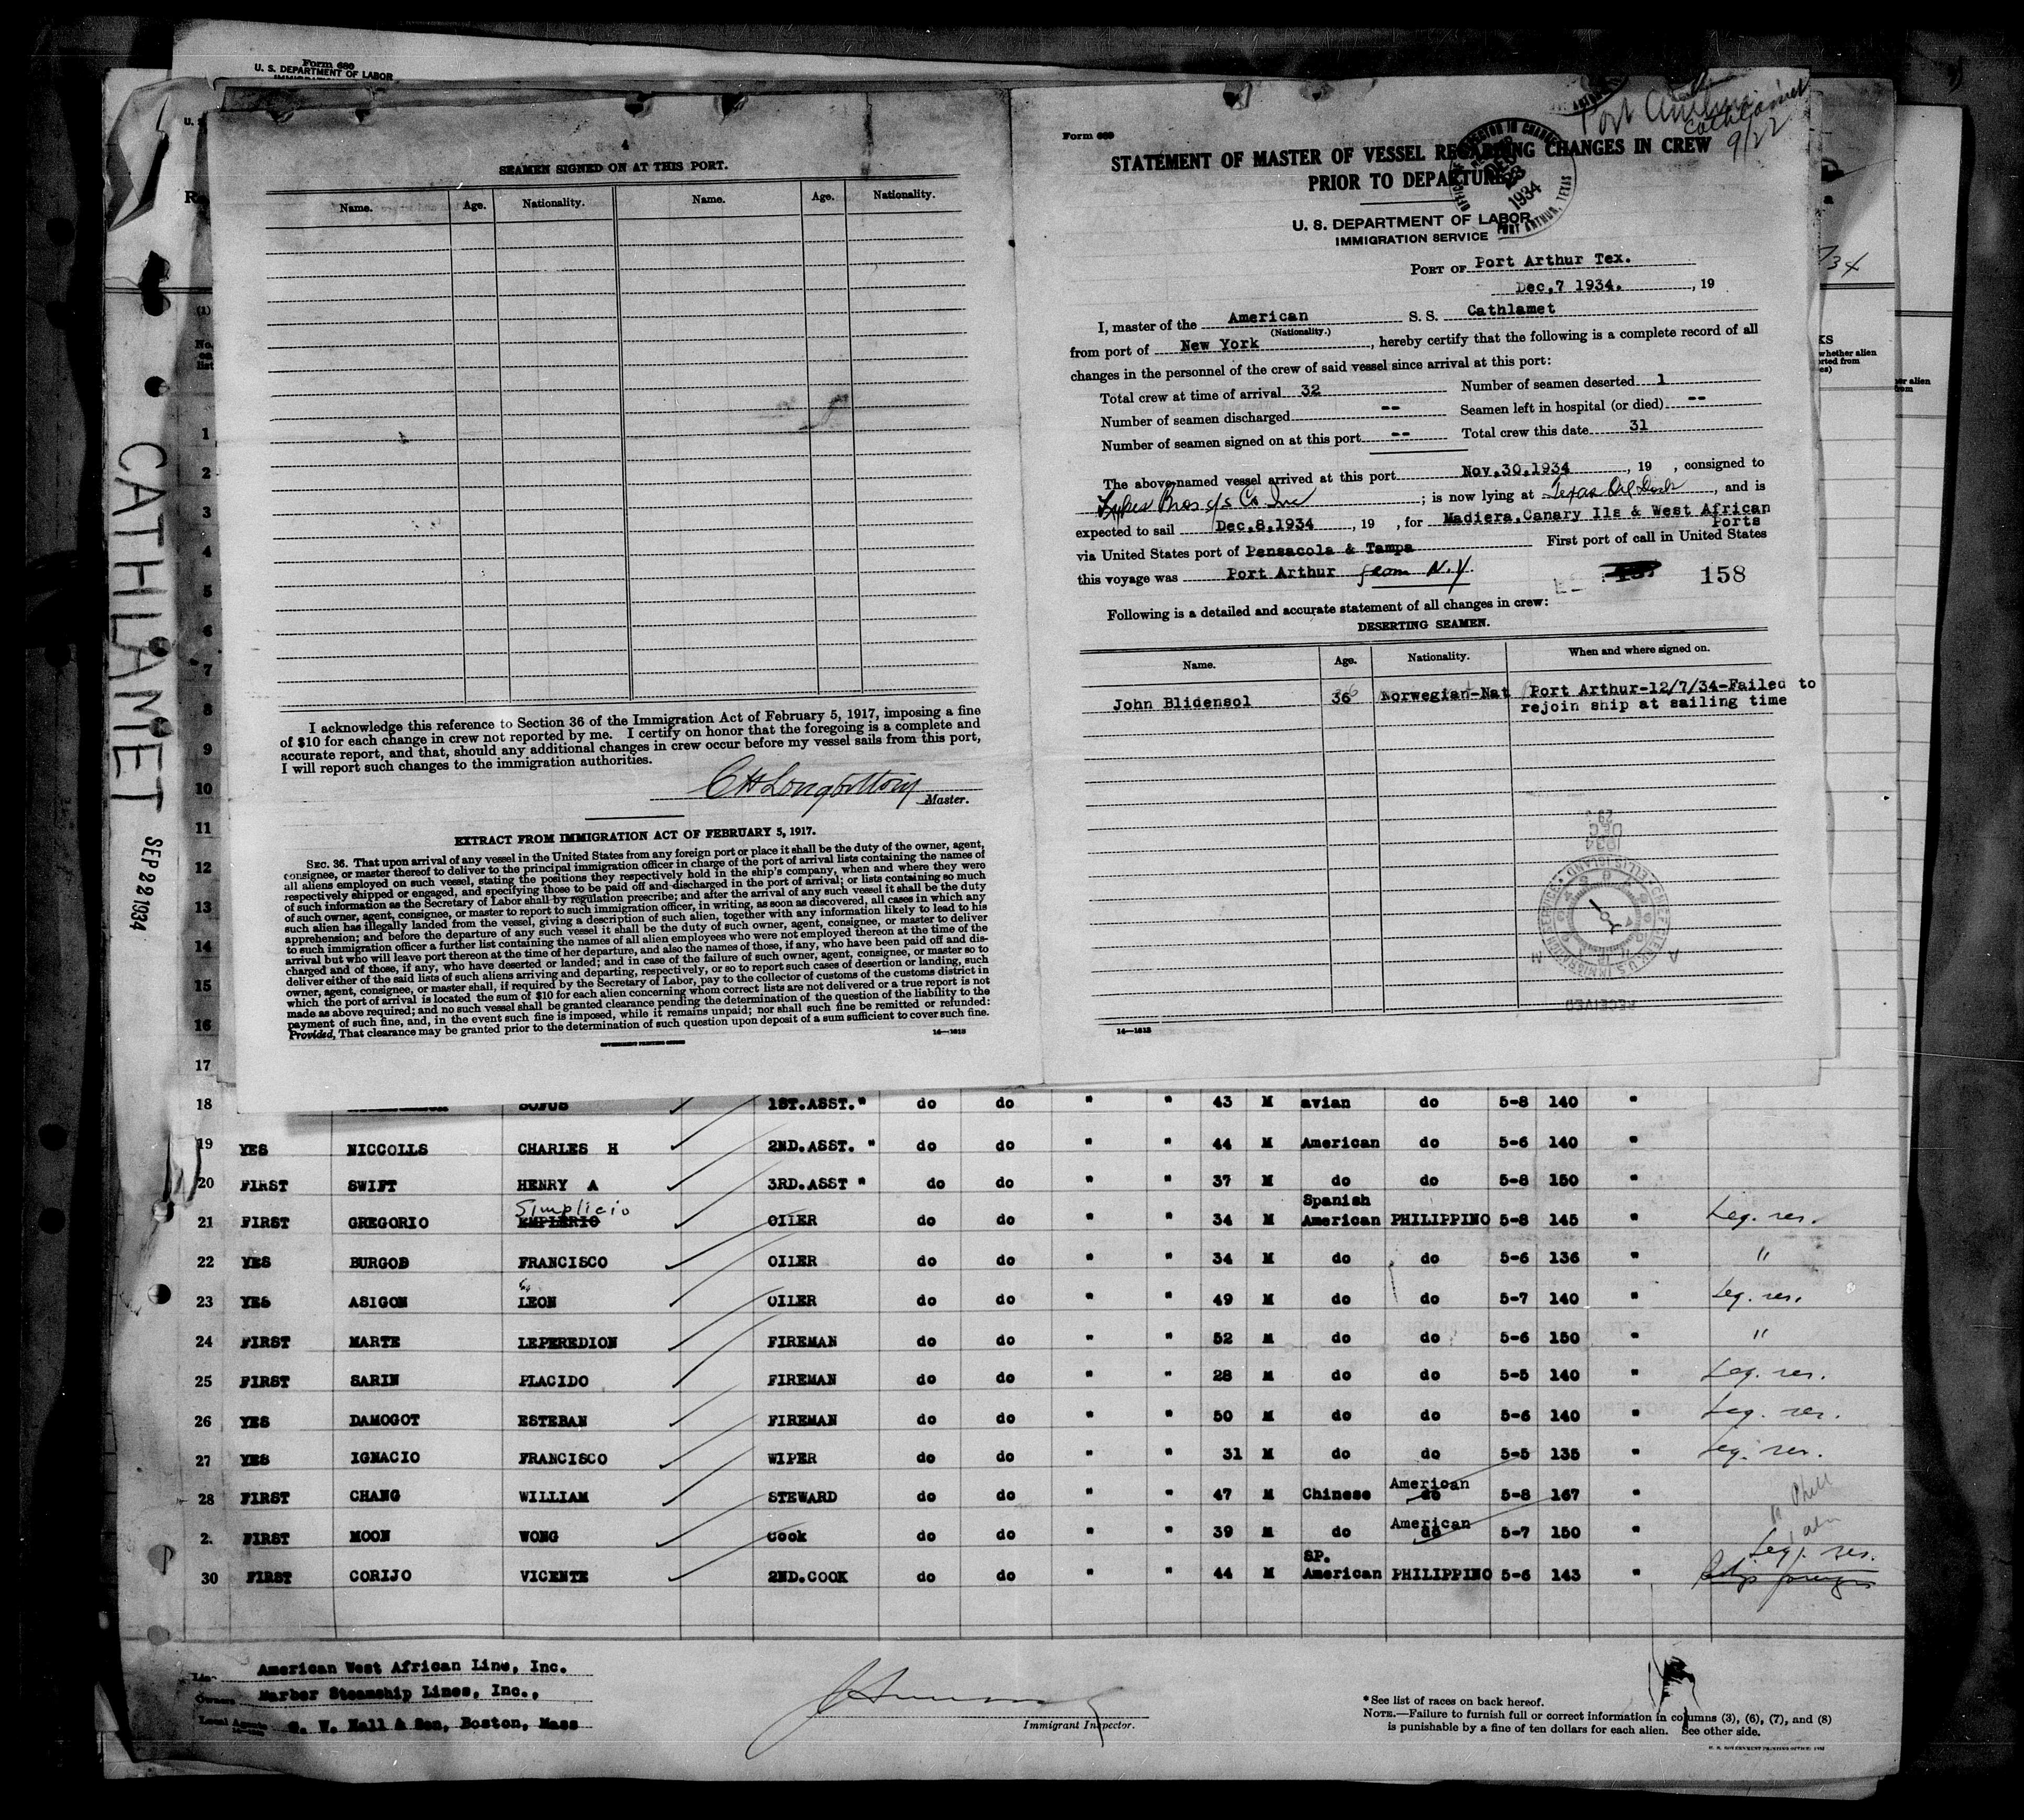 Form 680
U. S. DEPARTMENT OF LABOR
4
SEAMEN SIGNED ON AT THIS PORT.
Name. Age. Nationality. Name. Age. Nationality.
I acknowledge this reference to Section 36 of the Immigration Act of February 5, 1917, imposing a fine
of $10 for each change in crew not reported by me. I certify on honor that the foregoing is a complete and
accurate report, and that, should any additional changes in crew occur before my vessel sails from this port,
I will report such changes to the immigration authorities.
C H Longbottom
Master.
EXTRACT FROM IMMIGRATION ACT OF FEBRUARY 5, 1917.
SEC. 36. That upon arrival of any vessel in the United States from any foreign port or place it shall be the duty of the owner, agent,
consignee, or master thereof to deliver to the principal immigration officer in charge of the port of arrival lists containing the names of
all aliens employed on such vessel, stating the positions they respectively hold in the ship's company, when and where they were
respectively shipped or engaged, and specifying those to be paid off and discharged in the port of arrival; or lists containing so much
of such information as the Secretary of Labor shall by regulation prescribe; and after the arrival of any such vessel it shall be the duty
of such owner, agent, consignee, or master to report to such immigration officer, in writing, as soon as discovered, all cases in which any
such alien has illegally landed from the vessel, giving a description of such alien, together with any information likely to lead to his
apprehension; and before the departure of any such vessel it shall be the duty of such owner, agent, consignee, or master to deliver
to such immigration officer a further list containing the names of all alien employees who were not employed thereon at the time of the
arrival but who will leave port thereon at the time of her departure, and also the names of those, if any, who have been paid off and dis-
charged and of those, if any, who have deserted or landed; and in case of the failure of such owner, agent, consignee, or master so to
deliver either of the said lists of such aliens arriving and departing, respectively, or so to report such cases of desertion or landing, such
owner, agent, consignee, or master shall, if required by the Secretary of Labor, pay to the collector of customs of the customs district in
which the port of arrival is located the sum of $10 for each alien concerning whom correct lists are not delivered or a true report is not
made as above required; and no such vessel shall be granted clearance pending the determination of the question of the liability to the
payment of such fine, and, in the event such fine is imposed, while it remains unpaid; nor shall such fine be remitted or refunded:
Provided, That clearance may be granted prior to the determination of such question upon deposit of a sum sufficient to cover such fine.
GOVERNMENT PRINTING OFFICE 14—1618
Port Arthur
Cathlamet
9/22
Form 689
STATEMENT OF MASTER OF VESSEL REGARDING CHANGES IN CREW
PRIOR TO DEPARTURE
1934
PORT ARTHUR, TEXAS
U. S. DEPARTMENT OF LABOR
IMMIGRATION SERVICE
PORT OF Port Arthur Tex.
Dec,7 1934. , 19
I, master of the American S. S. Cathlamet
(Nationality.)
from port of New York , hereby certify that the following is a complete record of all
changes in the personnel of the crew of said vessel since arrival at this port:
Total crew at time of arrival 32 Number of seamen deserted 1
Number of seamen discharged -- Seamen left in hospital (or died) --
Number of seamen signed on at this port -- Total crew this date 31
The above-named vessel arrived at this port Nov,30,1934 , 19 , consigned to
Lykes Bros S/S Co. Inc ; is now lying at Texas Oil Dock , and is
expected to sail Dec,8,1934 , 19 , for Madiera,Canary Ils & West African
Ports
via United States port of Pensacola & Tampa First port of call in United States
this voyage was Port Arthur from N.Y.
158
Following is a detailed and accurate statement of all changes in crew:
DESERTING SEAMEN.
Name. Age. Nationality. When and where signed on.
John Blidensol 36 Norwegian-Nat Port Arthur-12/7/34-Failed to
rejoin ship at sailing time
14—1618
CATHLAMET SEP 22 1934
1
2
3
4
5
6
7
8
9
10
11
12
13
14
15
16
17
18 1ST.ASST." do do " " 43 M avian do 5-8 140 "
19 YES NICCOLLS CHARLES H 2ND.ASST. " do do " " 44 M American do 5-6 140 "
20 FIRST SWIFT HENRY A 3RD.ASST " do do " " 37 M do do 5-8 150 "
Simplicio Spanish
21 FIRST GREGORIO EMPLERIO OILER do do " " 34 M American PHILIPPINO 5-8 145 " Leg. res.
22 YES BURGOD FRANCISCO OILER do do " " 34 M do do 5-6 136 " "
23 YES ASIGON LEON OILER do do " " 49 M do do 5-7 140 " Leg. res.
24 FIRST MARTE LEPEREDION FIREMAN do do " " 52 M do do 5-6 150 " "
25 FIRST SARIN PLACIDO FIREMAN do do " " 28 M do do 5-5 140 " Leg. res.
26 YES DAMOGOT ESTEBAN FIREMAN do do " " 50 M do do 5-6 140 " Leg. res.
27 YES IGNACIO FRANCISCO WIPER do do " " 31 M do do 5-5 135 " Leg. res.
American
28 FIRST CHANG WILLIAM STEWARD do do " " 47 M Chinese do 5-8 167 "
American
2. FIRST MOON WONG Cook do do " " 39 M do do 5-7 150 "
SP. Leg. res.
30 FIRST CORIJO VICENTE 2ND.COOK do do " " 44 M American PHILIPPINO 5-6 143 "
Line American West African Line, Inc.
Owners Barber Steamship Lines, Inc.,
Local Agents C. W. Hall & Son, Boston, Mass
Immigrant Inspector.
*See list of races on back hereof.
NOTE.—Failure to furnish full or correct information in columns (3), (6), (7), and (8)
is punishable by a fine of ten dollars for each alien. See other side.